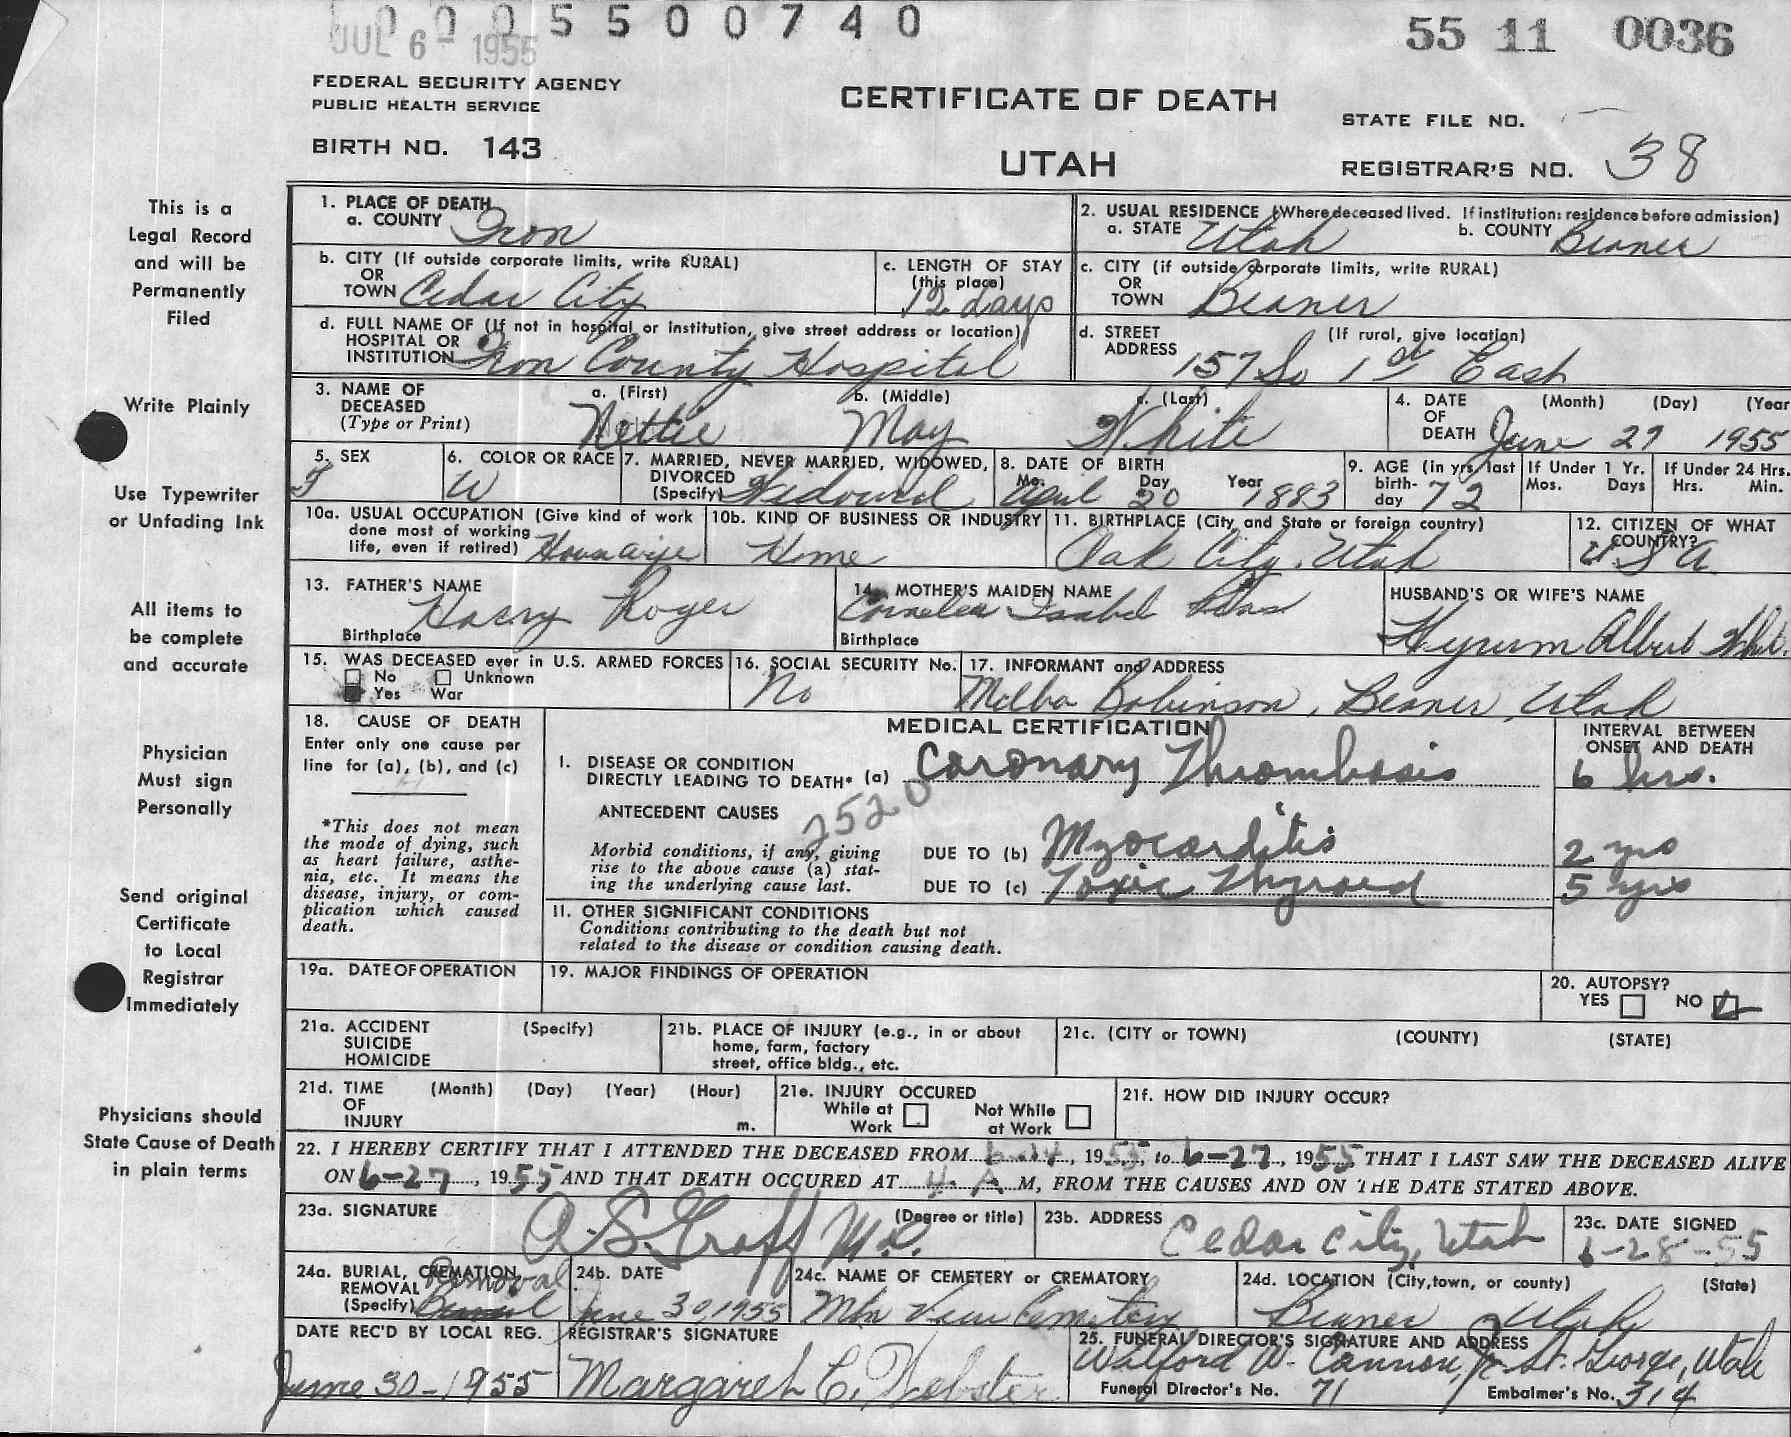 0005500740
JUL 6 - 1955
55 11 0036
FEDERAL SECURITY AGENCY
PUBLIC HEALTH SERVICE
BIRTH NO. 143
CERTIFICATE OF DEATH
UTAH
STATE FILE NO.
REGISTRAR'S NO. 38
This is a
Legal Record
and will be
Permanently
Filed
Write Plainly
Use Typewriter
or Unfading Ink
All items to
be complete
and accurate
Physician
Must sign
Personally
Send original
Certificate
to Local
Registrar
Immediately
Physicians should
State Cause of Death
in plain terms
1. PLACE OF DEATH
a. COUNTY Iron
2. USUAL RESIDENCE (Where deceased lived. If institution: residence before admission)
a. STATE Utah b. COUNTY Beaver
b. CITY (If outside corporate limits, write RURAL)
OR
TOWN Cedar City
c. LENGTH OF STAY
(this place)
12 days
c. CITY (if outside corporate limits, write RURAL)
OR
TOWN Beaver
d. FULL NAME OF (If not in hospital or institution, give street address or location)
HOSPITAL OR
INSTITUTION Iron County Hospital
d. STREET (If rural, give location)
ADDRESS 157 So 1st East
3. NAME OF DECEASED
(Type or Print)
a. (First) b. (Middle) c. (Last)
Nettie May White
4. DATE OF DEATH (Month) (Day) (Year
June 27 1955
5. SEX
F
6. COLOR OR RACE
W
7. MARRIED, NEVER MARRIED, WIDOWED,
DIVORCED
(Specify) Widowed
8. DATE OF BIRTH
Mo. Day Year
April 20 1883
9. AGE (in yrs, last
birth-
day 72
If Under 1 Yr.
Mos. Days
If Under 24 Hrs.
Hrs. Min.
10a. USUAL OCCUPATION (Give kind of work
done most of working
life, even if retired) Housewife
10b. KIND OF BUSINESS OR INDUSTRY
Home
11. BIRTHPLACE (City, and State or foreign country)
Oak City, Utah
12. CITIZEN OF WHAT
COUNTRY?
U S A
13. FATHER'S NAME
Harry Roper
Birthplace
14. MOTHER'S MAIDEN NAME
Isabel
Birthplace
HUSBAND'S OR WIFE'S NAME
Hyrum Albert White
15. WAS DECEASED ever in U.S. ARMED FORCES
No Unknown
Yes War
16. SOCIAL SECURITY No.
No
17. INFORMANT and ADDRESS
Melba Robinson, Beaver, Utah
18. CAUSE OF DEATH
Enter only one cause per
line for (a), (b), and (c)
*This does not mean
the mode of dying, such
as heart failure, asthe-
nia, etc. It means the
disease, injury, or com-
plication which caused
death.
MEDICAL CERTIFICATION
INTERVAL BETWEEN
ONSET AND DEATH
I. DISEASE OR CONDITION
DIRECTLY LEADING TO DEATH* (a) Coronary Thrombosis 6 hrs.
ANTECEDENT CAUSES
2520
Morbid conditions, if any, giving
rise to the above cause (a) stat-
ing the underlying cause last.
DUE TO (b) Myocarditis 2 yrs
DUE TO (c) Toxic Thyroid 5 yrs
II. OTHER SIGNIFICANT CONDITIONS
Conditions contributing to the death but not
related to the disease or condition causing death.
19a. DATE OF OPERATION
19. MAJOR FINDINGS OF OPERATION
20. AUTOPSY?
YES NO
21a. ACCIDENT (Specify)
SUICIDE
HOMICIDE
21b. PLACE OF INJURY (e.g., in or about
home, farm, factory
street, office bldg., etc.
21c. (CITY or TOWN) (COUNTY) (STATE)
21d. TIME (Month) (Day) (Year) (Hour)
OF
INJURY m.
21e. INJURY OCCURED
While at Work
Not While at Work
21f. HOW DID INJURY OCCUR?
22. I HEREBY CERTIFY THAT I ATTENDED THE DECEASED FROM 6-14, 1955, to 6-27, 1955, THAT I LAST SAW THE DECEASED ALIVE
ON 6-27, 1955 AND THAT DEATH OCCURED AT 4 A M, FROM THE CAUSES AND ON THE DATE STATED ABOVE.
23a. SIGNATURE (Degree or title)
A. S. Graff M.D.
23b. ADDRESS
Cedar City, Utah
23c. DATE SIGNED
6-28-55
24a. BURIAL, CREMATION,
REMOVAL
(Specify) Burial
Removal
24b. DATE
June 30, 1955
24c. NAME OF CEMETERY or CREMATORY
Mtn View Cemetery
24d. LOCATION (City, town, or county) (State)
Beaver Utah
DATE REC'D BY LOCAL REG.
June 30-1955
REGISTRAR'S SIGNATURE
Margaret C. Webster
25. FUNERAL DIRECTOR'S SIGNATURE AND ADDRESS
Walford W. Cannon, Jr. St. George, Utah
Funeral Director's No. 71
Embalmer's No. 314